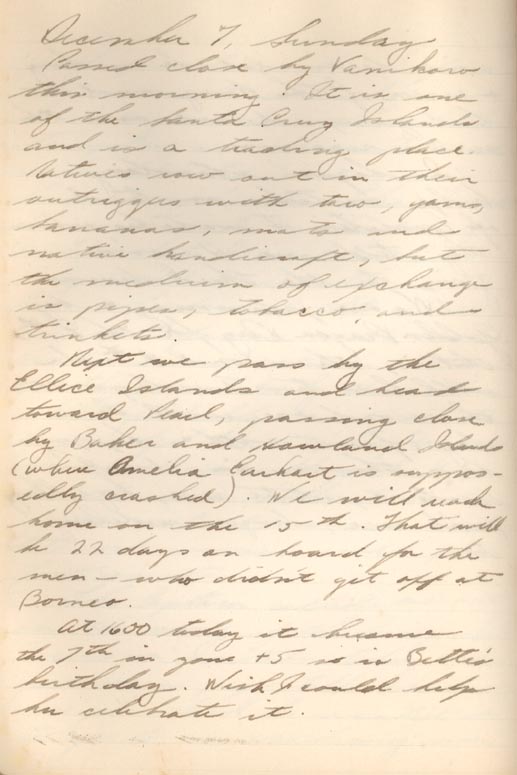 December 7, Sunday
Passed close by Vanikoro
this morning. It is one
of the Santa Cruz Islands
and is a trading place.
Natives row out in their
outriggers with taro, yams,
bananas, mats and
native handicraft, but
the medium of exchange
is pipes, tobacco and
trinkets.
Next we pass by the
Ellice Islands and head
toward Pearl, passing close
by Baker and Howland Islands
(where Amelia Earhart is suppos-
edly crashed). We will reach
home on the 15th. That will
be 22 days on board for the
men - who didn't get off at
Borneo.
At 1600 today it became
the 7th in zone +5 so is Bette's
birthday. Wish I could help
her celebrate it.